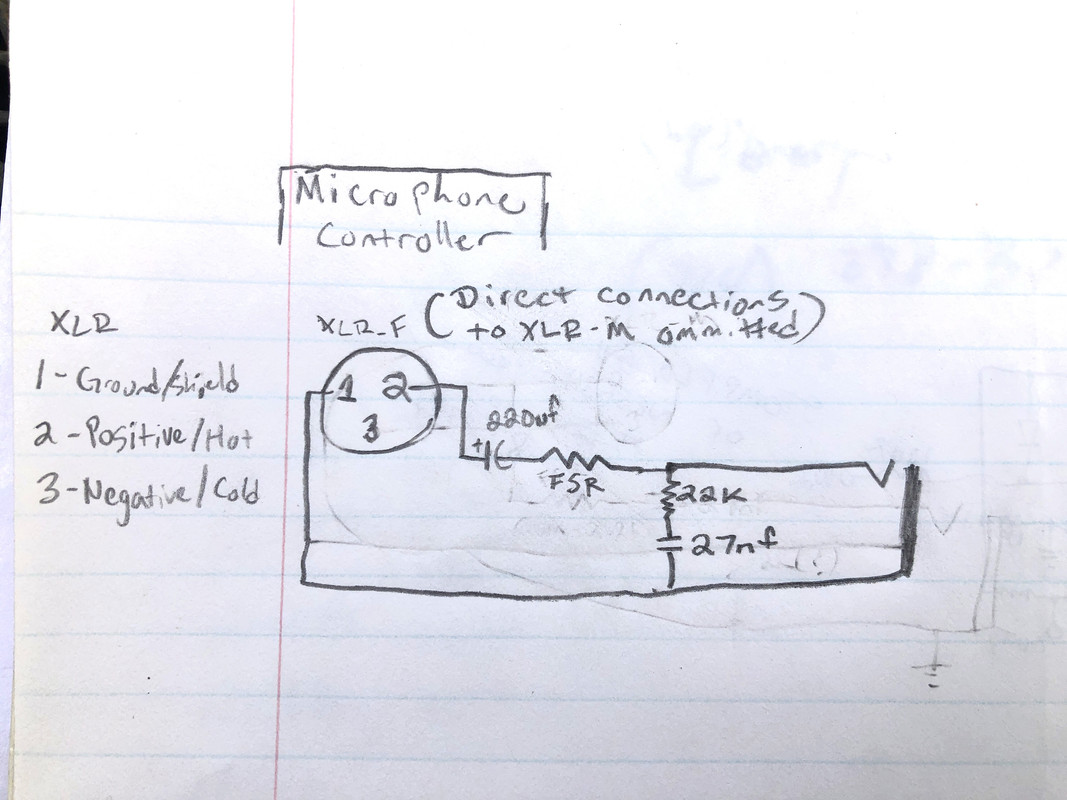 Microphone
Controller
(Direct connections
to XLR-M ommitted)
XLR
XLR-F
1 - Ground/Shield
2 - Positive/Hot
3 - Negative/Cold
1 2
3
220uf
+
FSR
22K
27nf